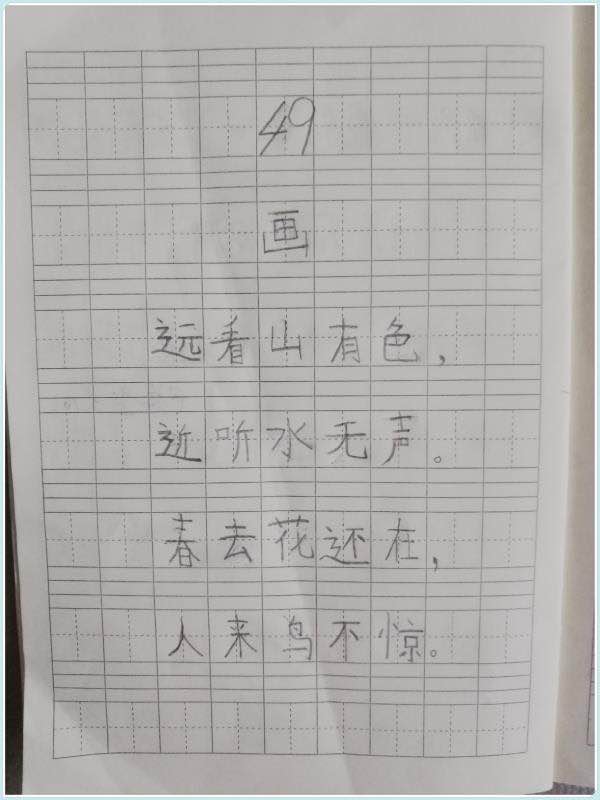 49
画
远看山有色，
近听水无声。
春去花还在，
人来鸟不惊。